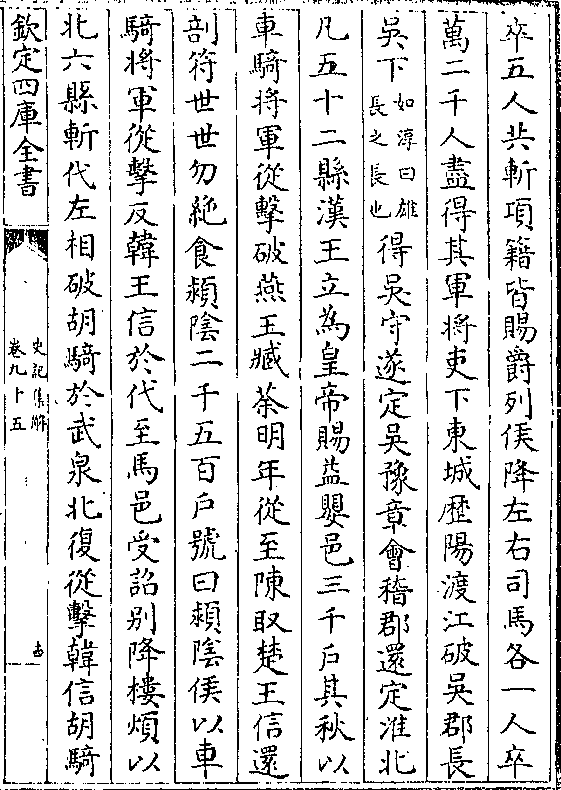 卒五人共斬項籍皆賜爵列侯降左右司馬各一人卒
萬二千人盡得其軍將吏下東城歷陽渡江破吳郡長
吳下如淳曰雄長之長也得吳守遂定吳豫章會稽郡還定淮北
凡五十二縣漢王立為皇帝賜益嬰邑三千戶其秋以
車騎將軍從擊破燕王臧荼明年從至陳取楚王信還
剖符世世勿絶食潁隂二千五百戶號曰潁隂侯以車
騎將軍從擊反韓王信於代至馬邑受詔别降樓煩以
北六縣斬代左相破胡騎於武泉北復從擊韓信胡騎
欽定四庫全書
史記集解
卷九十五